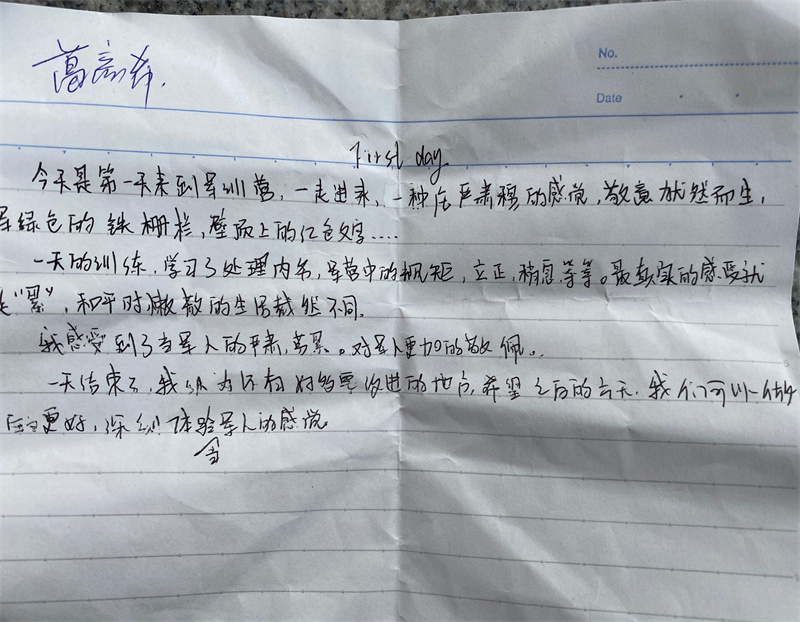 No.
Date
First day
今天是第一天来到军训营，一走进来，一种庄严肃穆的感觉，敬意犹然而生，
军绿色的铁栅栏，壁顶上的红色文字....
一天的训练，学习了处理内务，军营中的规矩，立正，稍息等等。最真实的感受就
是“累”，和平时懒散的生活截然不同。
我感受到了当军人的严肃，劳累。对军人更加的敬佩。
一天结束了，我认为还有好多需改进的地点，希望之后的六天，我们可以一做
更好，深纵体验军人的感觉。
当